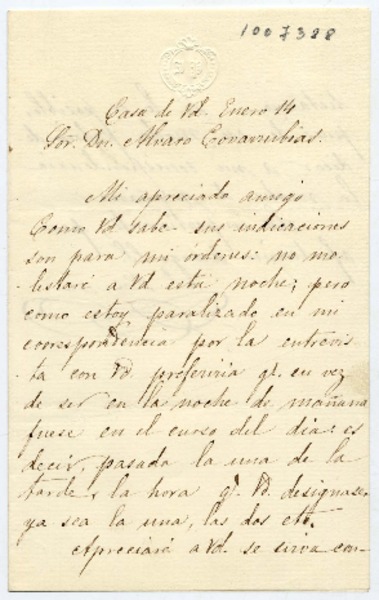 1007388
Casa de Vd. Enero 14
Sor. Dn. Alvaro Covarrubias.
Mi apreciado amigo
Como Vd sabe sus indicaciones
son para mi órdenes: no mo-
lestaré a Vd esta noche; pero
como estoy paralizado en mi
correspondencia por la entrevis-
ta con Vd. preferiria q. en vez
de ser en la noche de mañana
fuese en el curso del dia: es
decir, pasada la una de la
tarde, la hora q. Vd. designase,
ya sea la una, las dos etc.
Apreciaré a Vd. se sirva con-